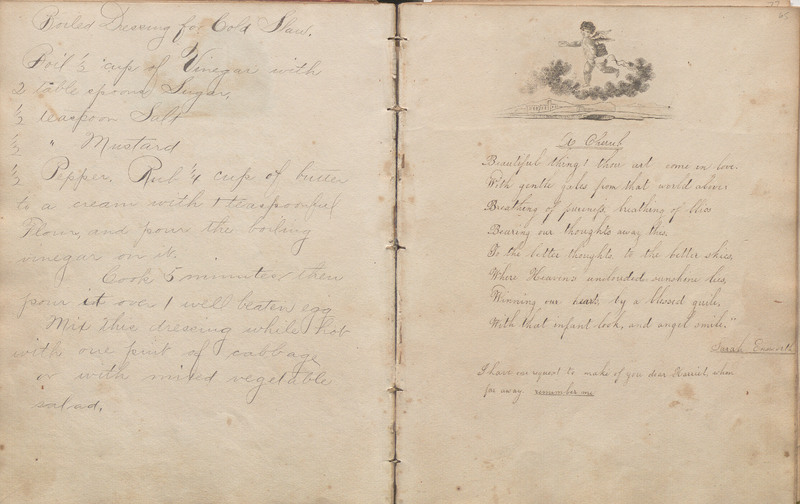 Boiled Dressing for Cold Slaw.
Boil ½ cup of Vinegar with
2 table spoons Sugar,
½ teaspoon Salt
½ " Mustard
½ Pepper. Rub ¼ cup of butter
to a cream with 1 teaspoonful
Flour, and pour the boiling
vinegar on it.
Cook 5 minutes then
pour it over 1 well beaten egg
Mix this dressing while hot
with one pint of cabbage
or with mixed vegetable
salad,
A Cherub
Beautiful thing! thou art come in love.
With gentle gales from that world above
Breathing of pureness, breathing of bliss
Bearing our thoughts away this.
To the better thoughts to the better skies,
Where Heaven's unclouded sunshine lies,
Winning our heart, by a blessed guile,
With that infant look, and angel smile."
Sarah
I have one request to make of you dear Harriet, when
far away remember me